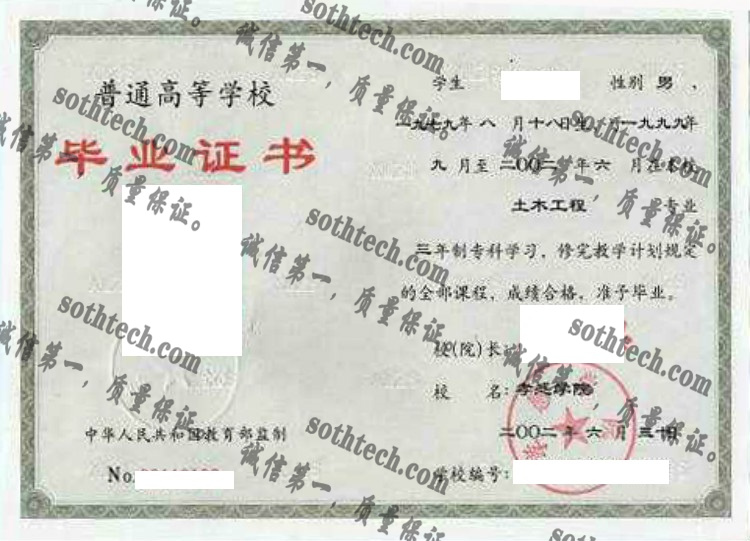 普通高等学校
毕业证书
中华人民共和国教育部监制
No.
学生 性别 男 ，
一九七九年 八 月十八日生，于一九九九年
九 月至 二〇〇二 年 六 月在本校
土木工程 专业
三年制专科学习，修完教学计划规定
的全部课程，成绩合格，准予毕业。
校(院)长：
校 名：学院
二〇〇二 年 六 月 三十日
学校编号：
sothtech.com
诚信第一，质量保证。
sothtech.com
诚信第一，质量保证。
sothtech.com
诚信第一，质量保证。
sothtech.com
诚信第一，质量保证。
sothtech.com
诚信第一，质量保证。
sothtech.com
诚信第一，质量保证。
sothtech.com
诚信第一，质量保证。